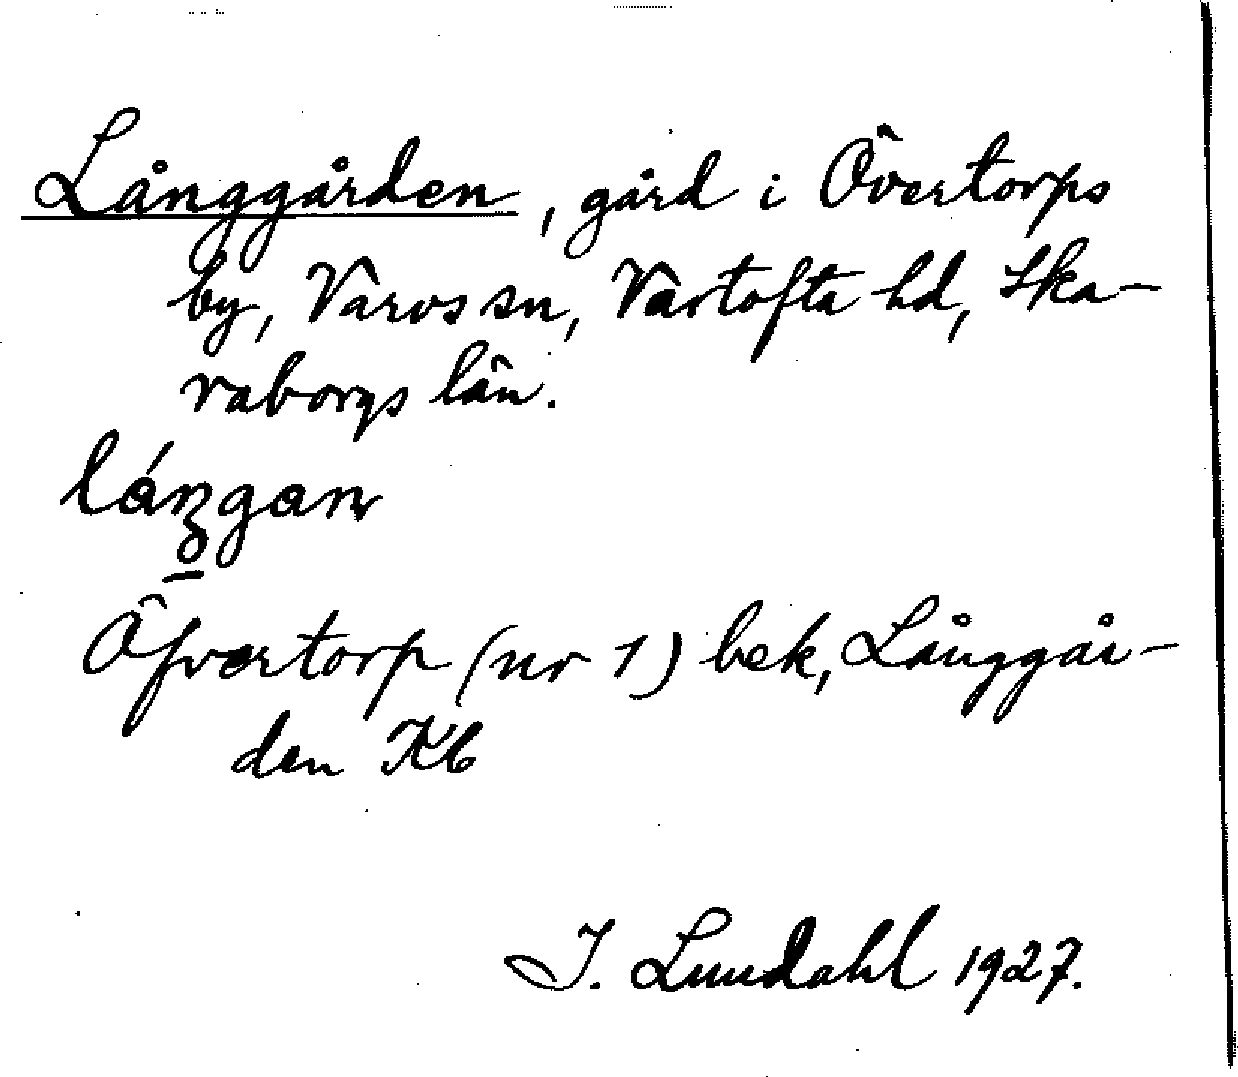 Långgården, gård i Övertorps
by, Varvs sn, Vartofta hd, Ska-
raborgs län.
Öfvertorp (nr 1) bek, Långgår-
den Kb
I. Lundahl 1927.